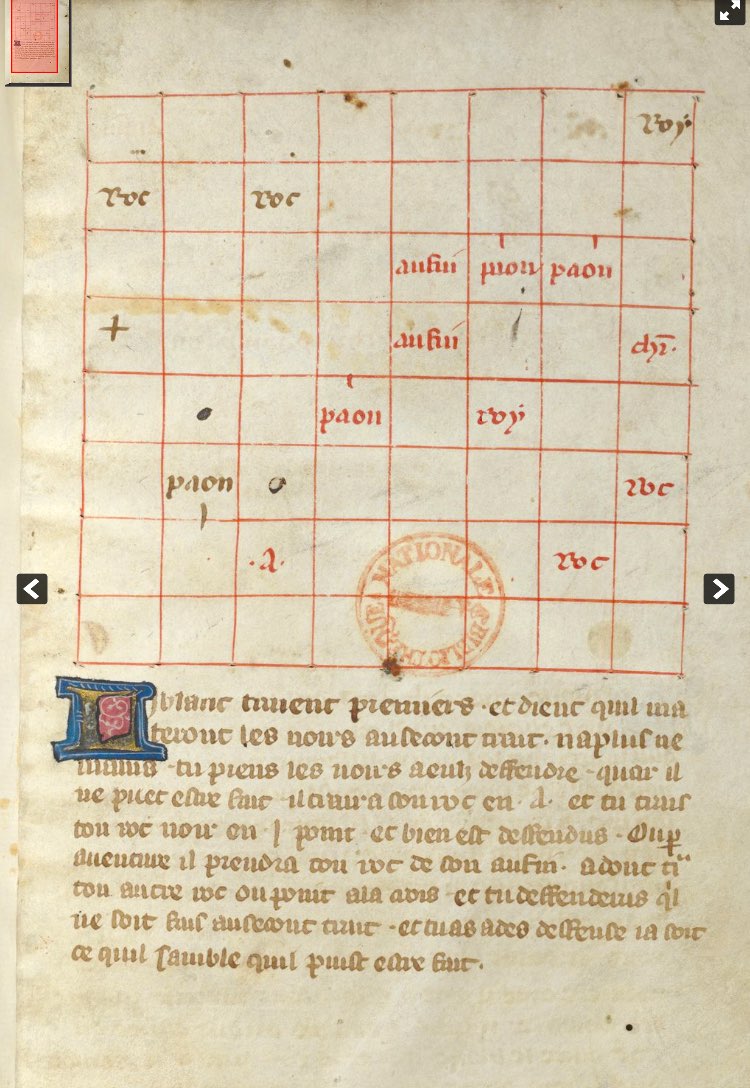 roy
roc roc
aufin pion paon
+ aufin chr̄.
paon roy
paon roc
.A. roc
NATIONALE
Li blanc traient premiers · et dient quil ma
teront les noirs au secont trait · na plus ne
mains · tu prens les noirs a eulz deffendre · quar il
ne puet estre fait · il traira son roc en · A · et tu trais
ton roc noir en · | · point · et bien est deffendus · Ou p̲
auenture il prendra ton roc de son aufin · adonc
ton autre roc ou point a la crois · et tu deffenderas
ne soit fais au secont trait · et tu as ades deffense ia soit
ce quil samble quil puist estre fait ·